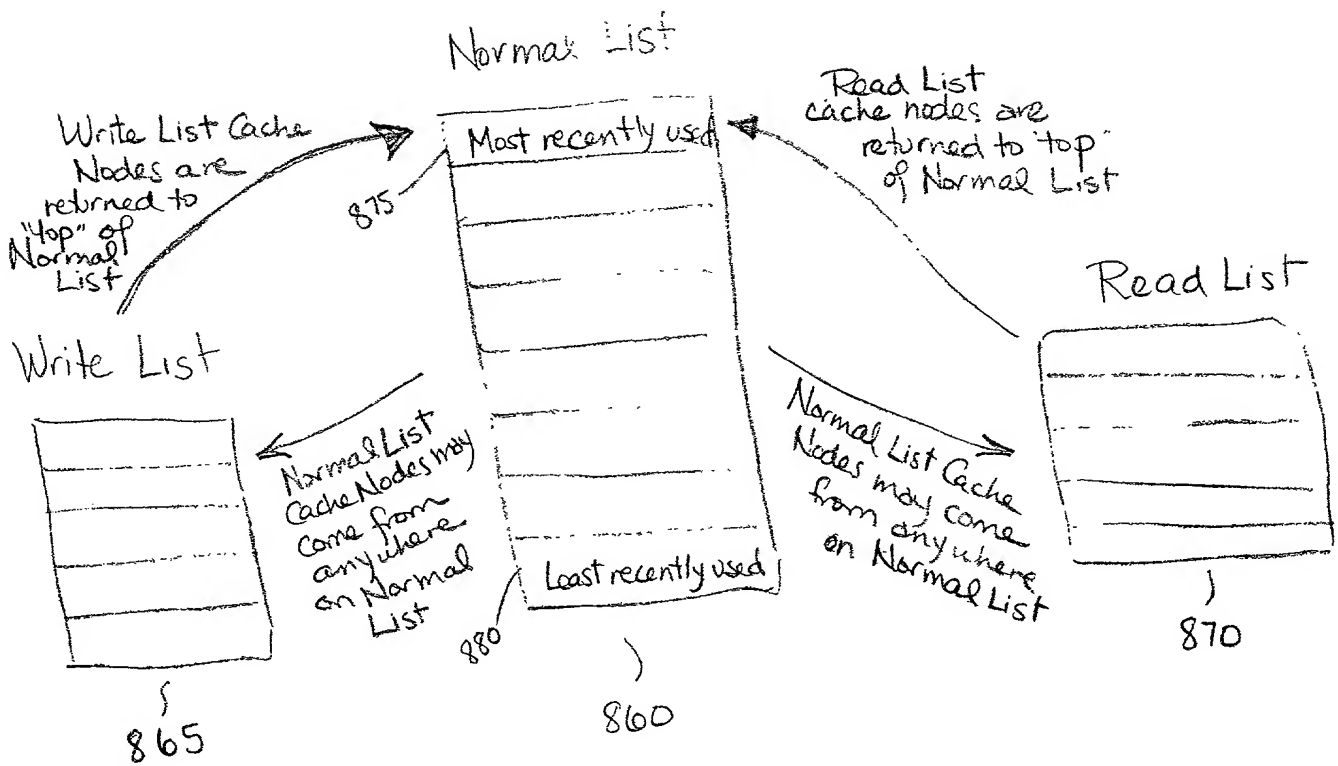 Normal List
Write List Cache
Nodes are
returned to
"top" of
Normal
List
875
Most recently used
Read List
cache nodes are
returned to "top"
of Normal List
Write List
Read List
Normal List
Cache Nodes may
come from
anywhere
on Normal
List
Normal List Cache
Nodes may come
from anywhere
on Normal List
Least recently used
880
865
860
870